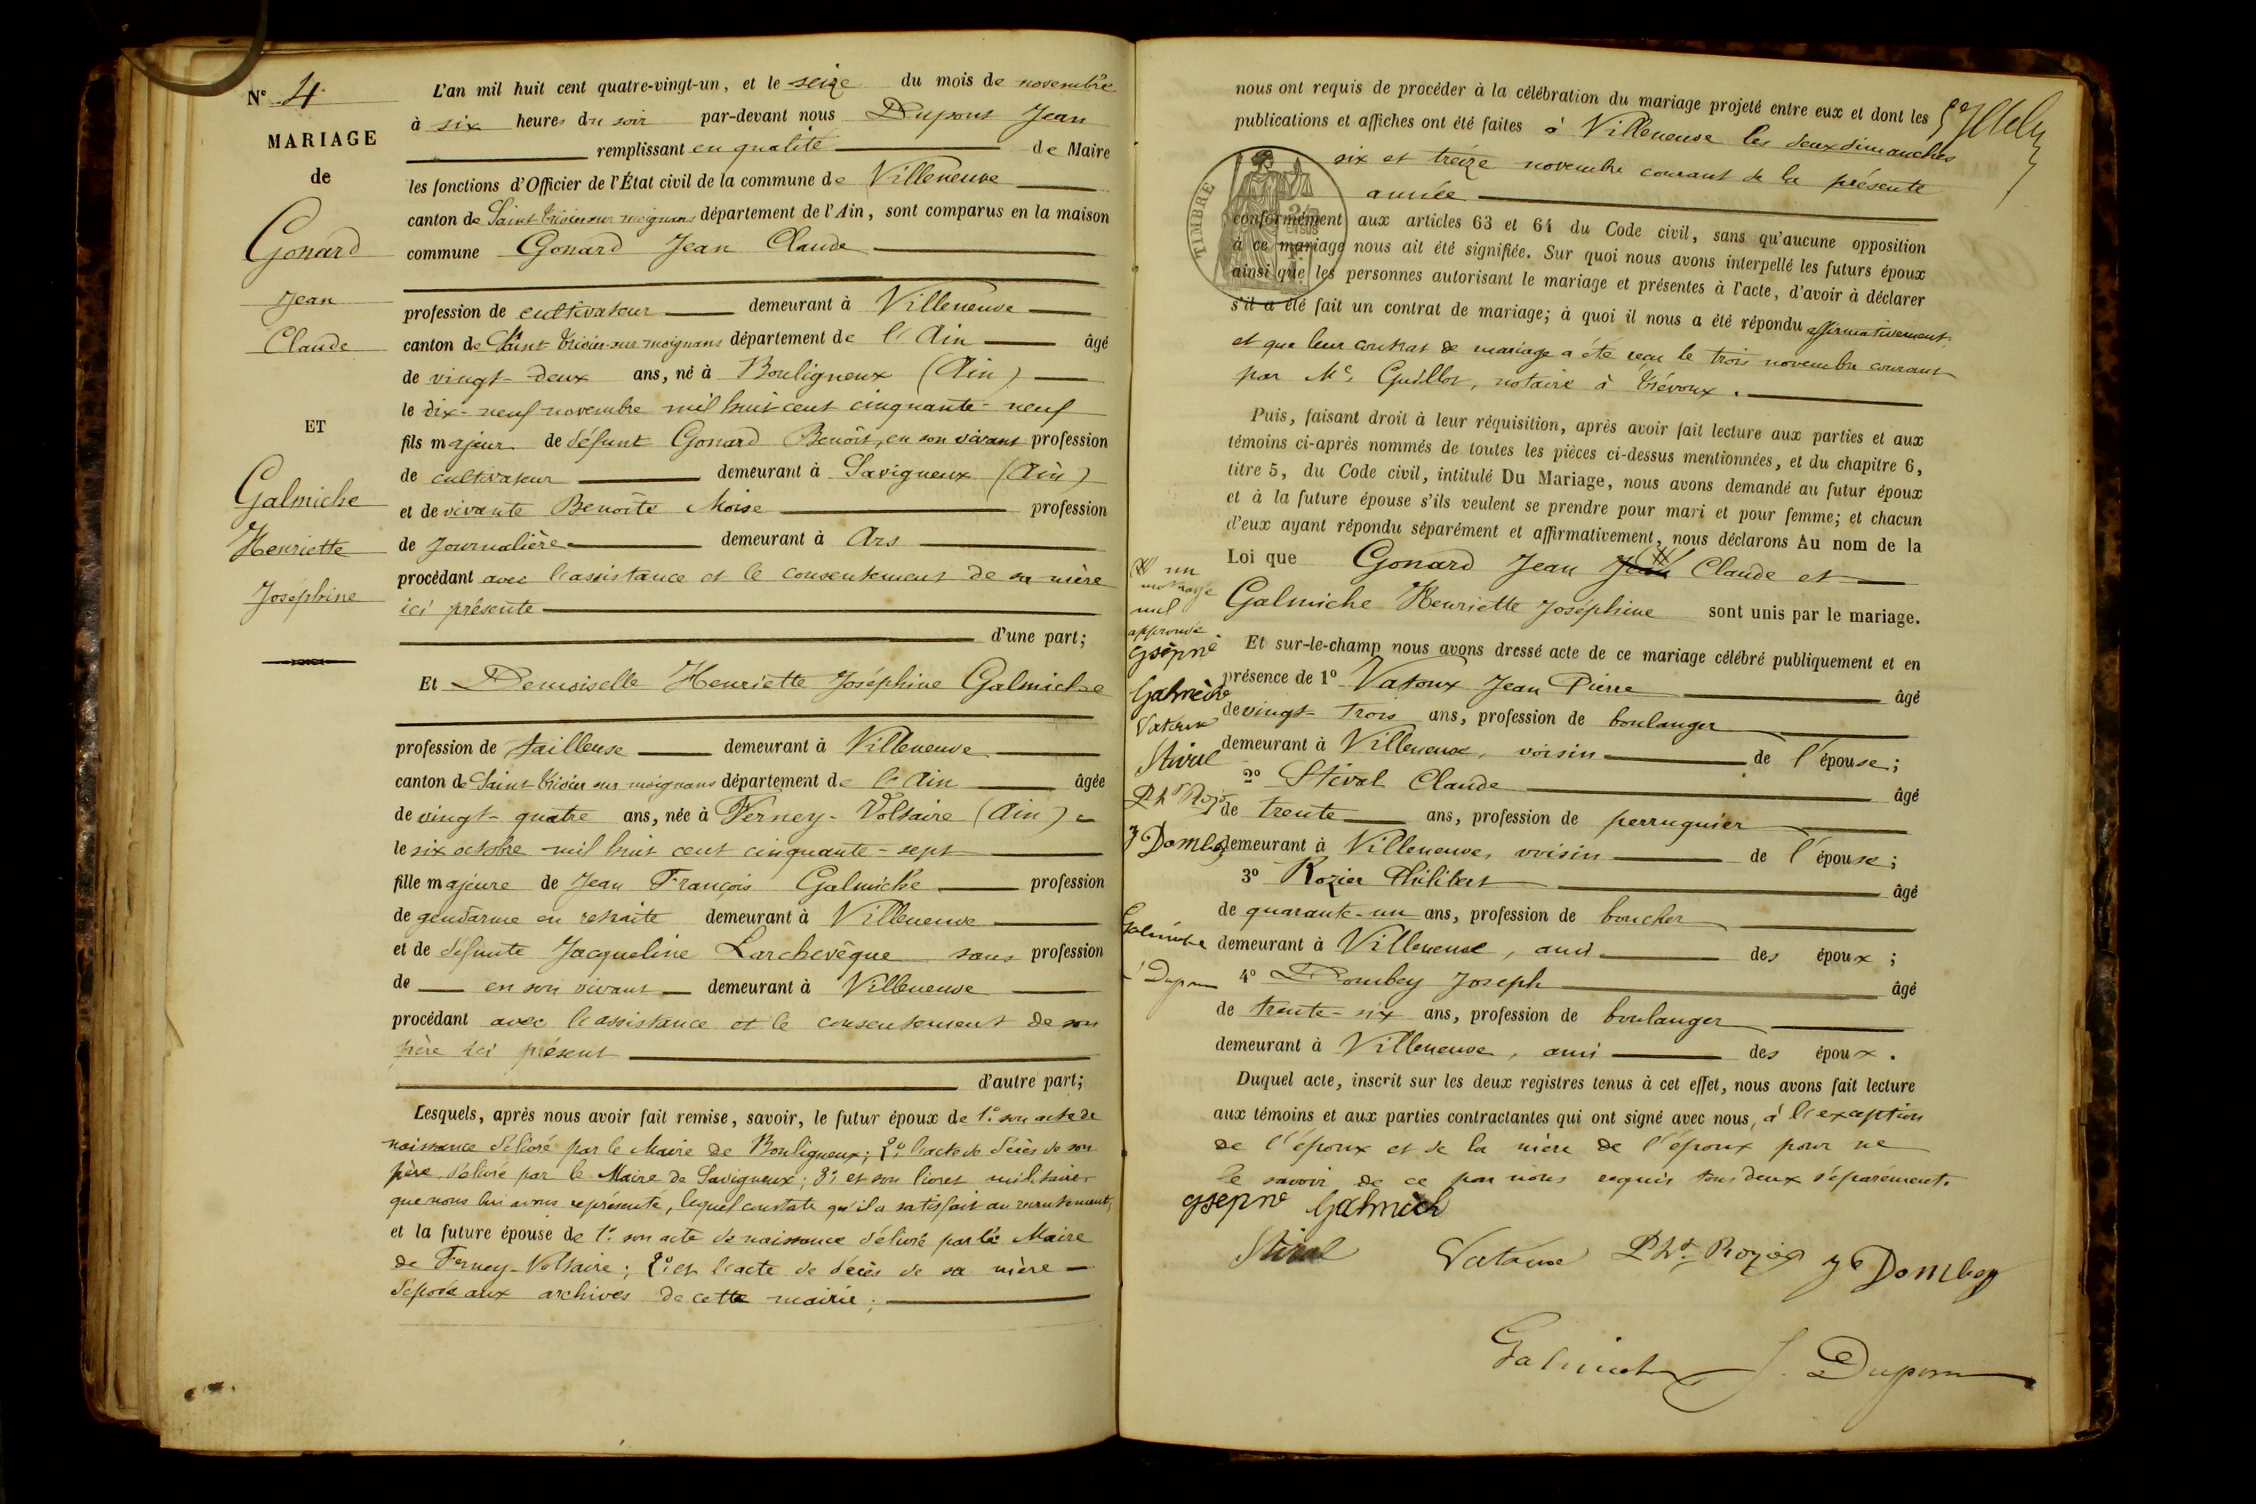 N° 4
MARIAGE
de
Gonard
Jean
Claude
ET
Galmiche
Henriette
Joséphine
L'an mil huit cent quatre-vingt-un, et le seize du mois de novembre
à six heures du soir par-devant nous Dupont Jean
remplissant en qualité de Maire
les fonctions d'Officier de l'État civil de la commune de Villeneuve
canton de Saint Trivier sur moignans département de l'Ain, sont comparus en la maison
commune Gonard Jean Claude
profession de cultivateur demeurant à Villeneuve
canton de Saint Trivier-sur-moignans département de l'Ain âgé
de vingt-deux ans, né à Bouligneux (Ain)
le dix-neuf novembre mil huit cent cinquante-neuf
fils majeur de défunt Gonard Benoît, en son vivant profession
de cultivateur demeurant à Savigneux (Ain)
et de vivante Benoîte Moise profession
de journalière demeurant à Ars
procédant avec l'assistance et le consentement de sa mère
ici présente
d'une part;
Et Demoiselle Henriette Joséphine Galmiche
profession de tailleuse demeurant à Villeneuve
canton de Saint Trivier sur moignans département de l'Ain âgée
de vingt-quatre ans, née à Ferney-Voltaire (Ain)
le six octobre mil huit cent cinquante-sept
fille majeure de Jean François Galmiche profession
de gendarme en retraite demeurant à Villeneuve
et de défunte Jacqueline Larchevêque sans profession
de en son vivant demeurant à Villeneuve
procédant avec l'assistance et le consentement de son
père ici présent
d'autre part;
Lesquels, après nous avoir fait remise, savoir, le futur époux de 1° son acte de
naissance délivré par le Maire de Bouligneux; 2° l'acte de décès de son
père délivré par le Maire de Savigneux; 3° et son livret militaire
que nous lui avons représenté, lequel constate qu'il a satisfait au recrutement,
et la future épouse de 1° son acte de naissance délivré par le Maire
de Ferney-Voltaire; 2° et l'acte de décès de sa mère
déposé aux archives de cette mairie;
nous ont requis de procéder à la célébration du mariage projeté entre eux et dont les
publications et affiches ont été faites à Villeneuve les deux dimanches
six et treize novembre courant de la présente
année
TIMBRE
conformément aux articles 63 et 64 du Code civil, sans qu'aucune opposition
à ce mariage nous ait été signifiée. Sur quoi nous avons interpellé les futurs époux
ainsi que les personnes autorisant le mariage et présentes à l'acte, d'avoir à déclarer
s'il a été fait un contrat de mariage; à quoi il nous a été répondu affirmativement
et que leur contrat de mariage a été reçu le trois novembre courant
par Me Guillot, notaire à Trévoux.
Puis, faisant droit à leur réquisition, après avoir fait lecture aux parties et aux
témoins ci-après nommés de toutes les pièces ci-dessus mentionnées, et du chapitre 6,
titre 5, du Code civil, intitulé Du Mariage, nous avons demandé au futur époux
et à la future épouse s'ils veulent se prendre pour mari et pour femme; et chacun
d'eux ayant répondu séparément et affirmativement, nous déclarons Au nom de la
Loi que Gonard Jean Jean Claude et
Galmiche Henriette Joséphine sont unis par le mariage.
un
mot rayé
nul
approuvé
Galmiche
Vatoux
Stival
Pht Rozi
J Dombe
Galmiche
J Dupon
Et sur-le-champ nous avons dressé acte de ce mariage célébré publiquement et en
présence de 1° Vatoux Jean Pierre âgé
de vingt-trois ans, profession de boulanger
demeurant à Villeneuve, voisin de l'épouse;
2° Stival Claude âgé
de trente ans, profession de perruquier
demeurant à Villeneuve, voisin de l'épouse;
3° Rozier Philibert âgé
de quarante-un ans, profession de boucher
demeurant à Villeneuve, ami des époux;
4° Dombey Joseph âgé
de trente-six ans, profession de boulanger
demeurant à Villeneuve, ami des époux.
Duquel acte, inscrit sur les deux registres tenus à cet effet, nous avons fait lecture
aux témoins et aux parties contractantes qui ont signé avec nous, à l'exception
de l'époux et de la mère de l'époux pour ne
le savoir de ce par nous requis tous deux séparément.
Galmich
Stival Vatoux Pht Rozier J Dombey
Galmiche J. Dupon